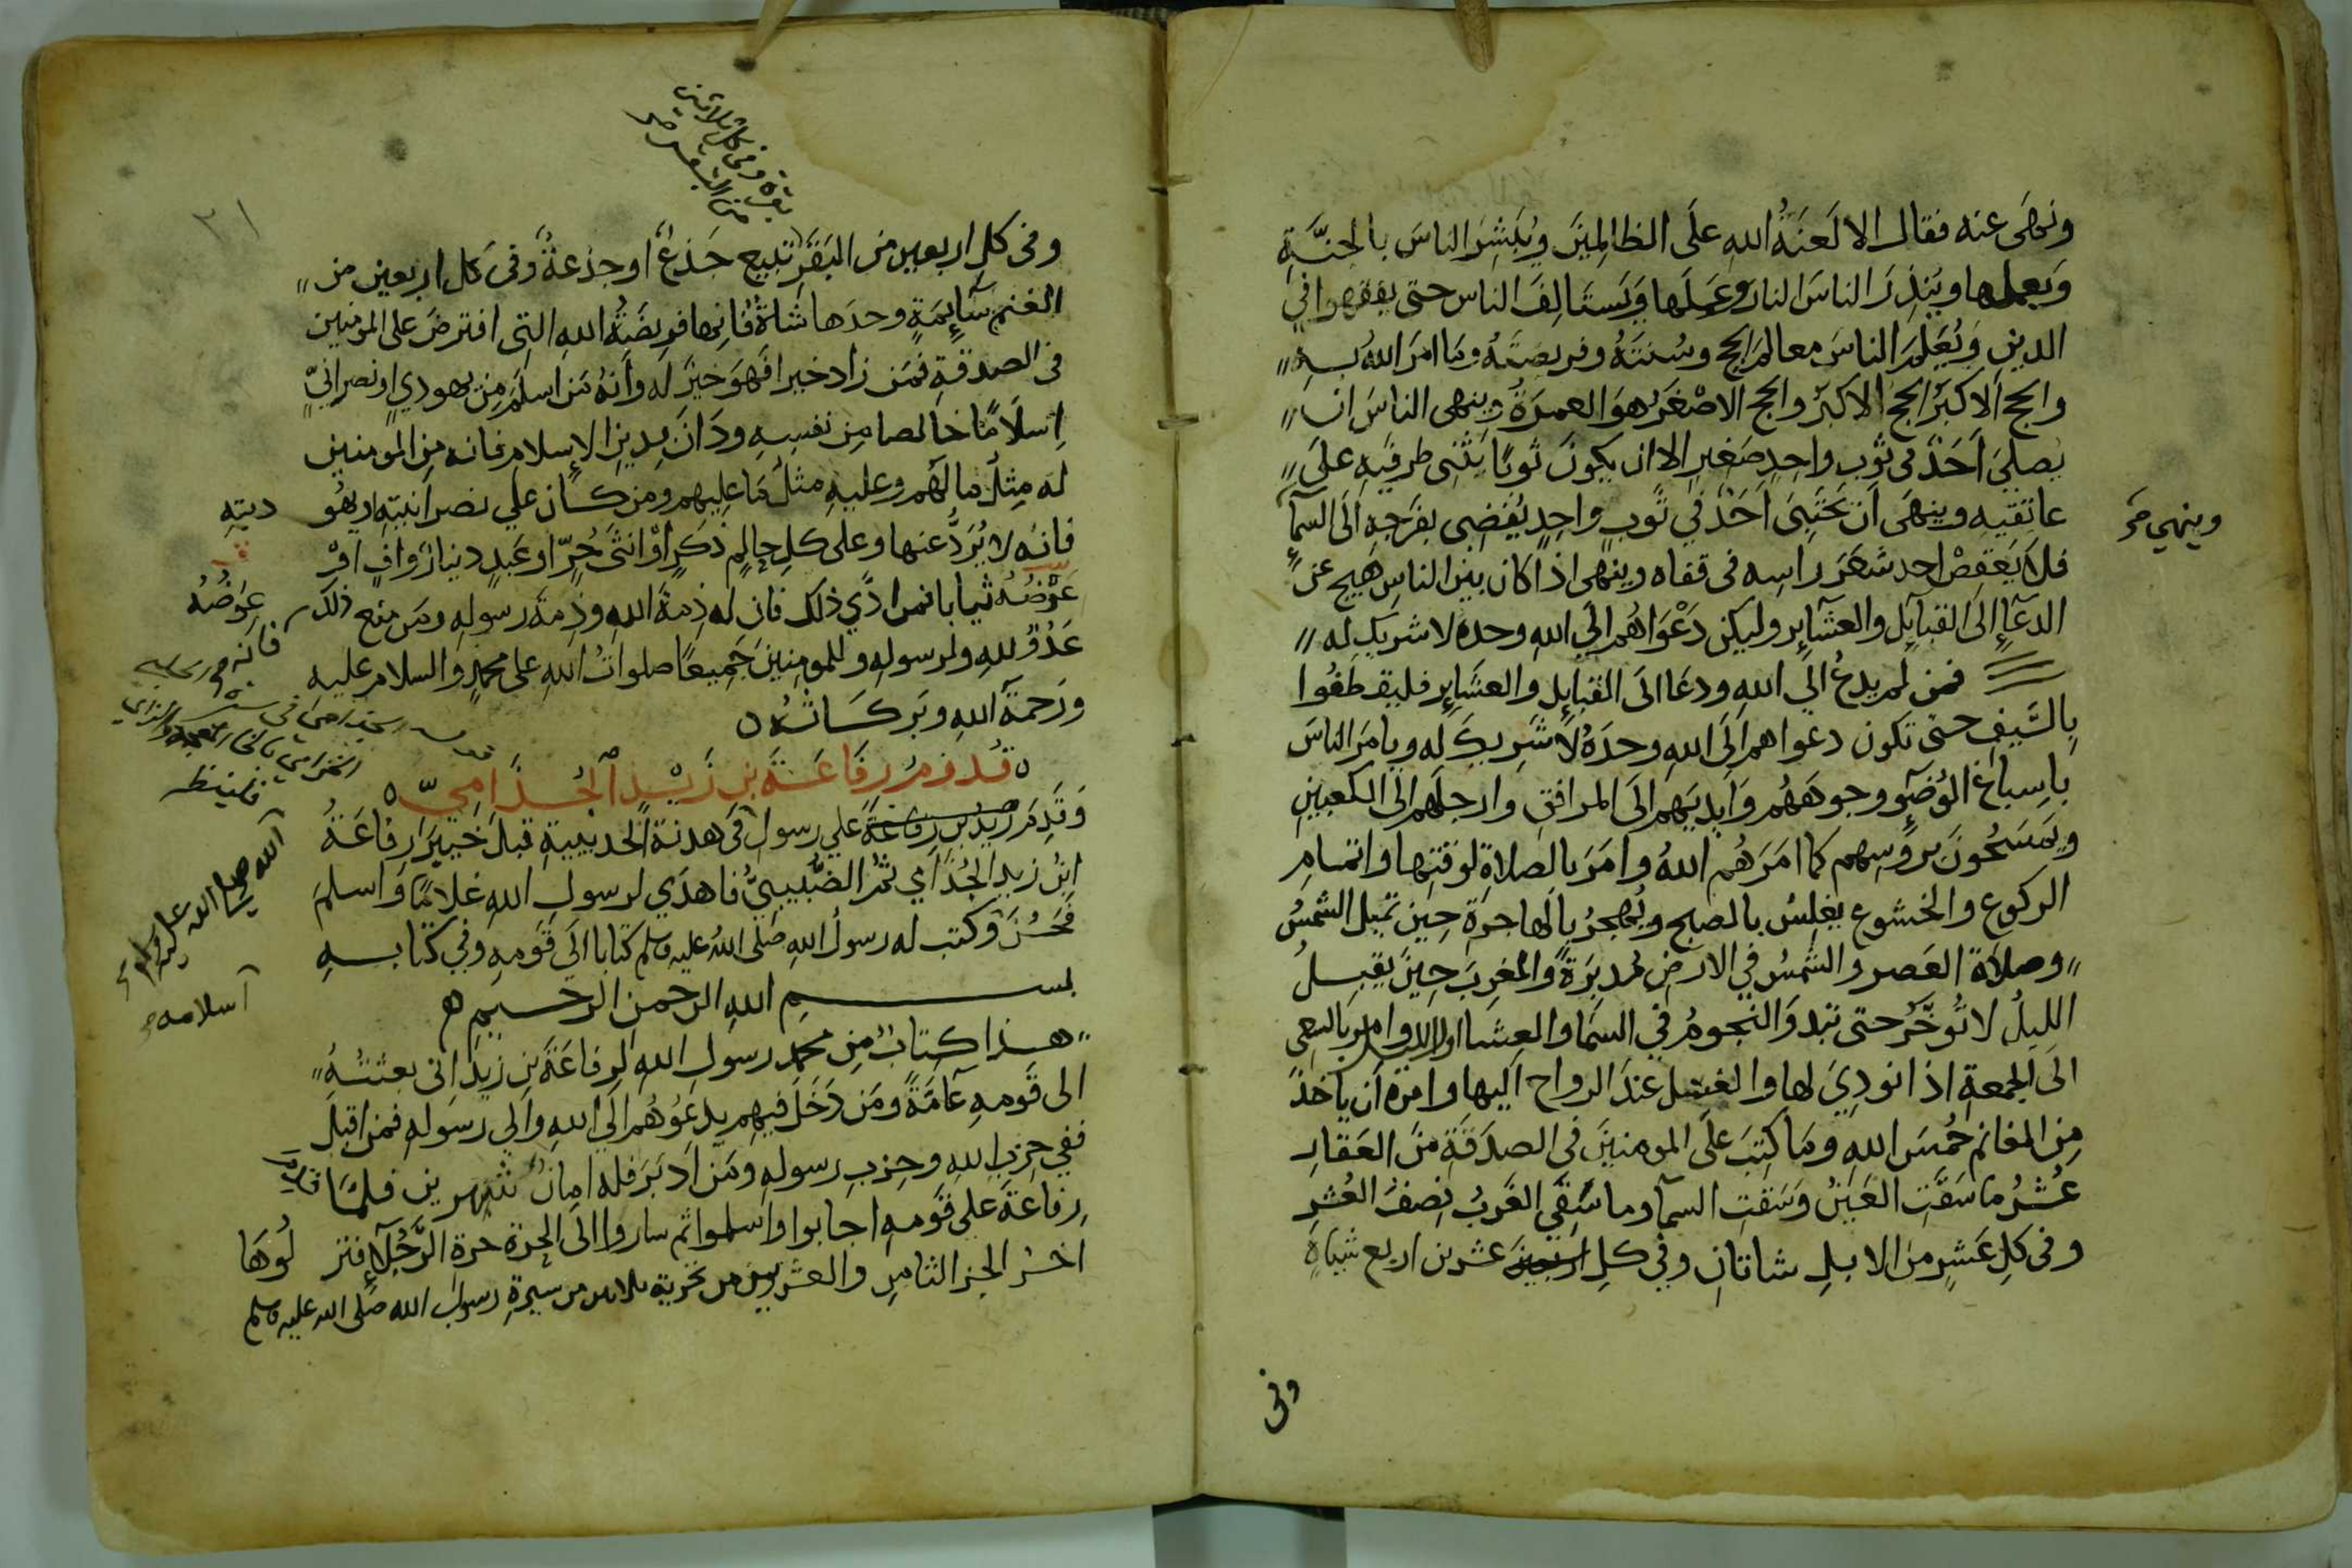 ونهى عنه فقال الا لَعنَةُ الله علَى الظالِمينَ ويُبَشِرَ الناسَ بالجنَّةِ
وَبعملها ويُنذِرَ الناسَ النار وعَملَها وَيَستَالِفَ الناس حتى يفقهوا في
الدينِ وَيُعَلِمَ الناسَ معالمَ الحج وسُنتَهُ وفريضَتَهُ وما امرَ اللهُ بـه
والحج الاكبَرُ الحج الاكبَر والحج الاصْغَرُ هوَ العمرَةُ وينهى الناسَ ان
يُصلىَ اَحَدٌ فى ثوب واحدٍ صَغيرٍ الا ان يكونَ ثوبًا يَثْنى طرفَيهِ علىَ
عاتقَيهِ وينهَى اَن يحتَبِىَ اَحَدٌ فِي ثَوبٍ واحدٍ يُفضِى بفَرَجِهِ اِلَى السمآءِ
وينهي
فلا يَعقِصْ احد شعَرَ راسِه فى قفاه وينهى اذا كان بين الناسِ هَيجٌ عن
الدعآءِ اِلىَ القبآيِل والعشآيِر وليكن دَعْوَاهُم الَي اللهِ وحدهُ لاشريك له
فمن لم يدعُ الَي اللهِ ودعَا الىَ القبايِل والعشَايِر فليقطَفُوا
بِالسَّيفِ حتى تكون دعواهم الَى اللهِ وحدَهُ لا شَرِيكَ له ويامَر الناسَ
باِسباغ الوُضوءِ وجوههُم وَايديَهم الىَ المرافق وارجلَهم الىَ الكعبينِ
ويَمسَحُونَ بروُسِهم كما امَرَهُم اللهُ وامَرَ بالصلاةِ لوَقتها واتمامِ
الركوع والخشوع يغلِسُ بالصبح ويُهجِرُ بالهَاجرَةِ حِينَ تَميل الشمسُ
وصلاة العَصرِ والشمسُ في الارضِ مُدبِرَةً والمغرِبَ حِينَ يقبِلُ
الليلُ لا تُؤخَّرُ حتى تبدوَ النجومُ في السمَا والعِشا اول الليل وامر بالسعى
الَى الجمعةِ اذا نودِيَ لها والغسْل عندَ الرواح اليها وامرَه ان ياخذَ
مِن المغانم خُمسَ اللهِ ومَا كتِبَ على المومنينَ فى الصدَقَةِ منَ العَقارِ
عُشْرُ ما سَقَتِ العَينُ وَسَقتِ السمآ وما سَقَى الغَربُ نِصفُ العُشرِ
وفى كلِ عَشرٍ من الابلِ شاتانِ وفي كل عشرين اربع شياهٍ
وفى
٣١
بقرة وفى كل ثلاثين
من البقر صح
وفى كل اربعين من البَقَرِ تبيع جَذعٌ او جذعةٌ وَفى كل اربعين من
الغنم سَآيِمَةٍ وحدَها شاةٌ فَانها فريضَةُ الله التِى افترضَ على المومنين
فى الصدقةِ فمَن زاد خيرا فَهوَ خيرٌ له وانهُ مَن اسلمَ مِن يهودىٍ او نصرانيٍّ
اِسلامًا خالصا مِن نفسِهِ ودَانَ بدِينِ الاِسلامِ فانه مِن المومنين
له مِثلُ ما لهُم وعليهِ مثلُ مَا عليهم ومن كان علي نصرانيتهِ او يهُو ديتِهِ
فانهُ لا يُرَدُّ عنها وعلى كل حالِمٍ ذكَرٍ اوْ انثى حُرٍّ او عَبدٍ دينارٌ وافٍ اوْ
عِوَضُهُ
عَوْضُهُ ثيابا فمن ادَّي ذلك فان له ذِمةَ اللهِ وذِمةَ رسولِه ومَن منع ذلك فانه
عَدُوٌ للهِ ولرسوله وللمومنِينَ جَمِيعًا صلواتُ اللهِ على محمدٍ والسلام عليه
ورَحمةُ اللهِ وبَركاتُهُ
قُدُومُ رِفَاعَةَ بنِ زَيْدٍ الجُذَامِيّ
وَقَدِمَ زيد بن رفاعة علي رسول في هدنةِ الحديبيةِ قبلَ خيبرَ رِفاعَةُ
الله صلى الله عليه وسلم
ابنُ زيدٍ الجُذامي ثمُ الضُّبيبيُّ فاهدَي لرسول اللهِ غلامًا وَاسلمَ
فَحسُنَ وكتب له رسولُ اللهِ صلى اللهُ عليه وسلم كتابا الىَ قَومِهِ وفي كتابـهِ
اسلامه
بسم الله الرحمن الرحيم
هذا كِتابٌ مِن محمدٍ رسولِ اللهِ لِرفاعَةَ بنِ زَيدٍ انى بعثتُهُ
الى قَومِهِ عَامَّةً ومَن دَخَلَ فيهِم يدعُوهُم الَي اللهِ وَالي رسَولهِ فمن اقبَلَ
ففي حِزبِ اللهِ وحِزبِ رسولِهِ ومَن ادبَرَ فله امانُ شهرين فلما قدم
رِفاعةَ على قَومهِ اجابوا واسلموا ثم ساروا الى الحرة حرةِ الرَّجْلآءِ فنز لُوهَا
اخر الجز الثامن والعشرين من تجزية من سيرة رسول الله صلى الله عليه وسلم